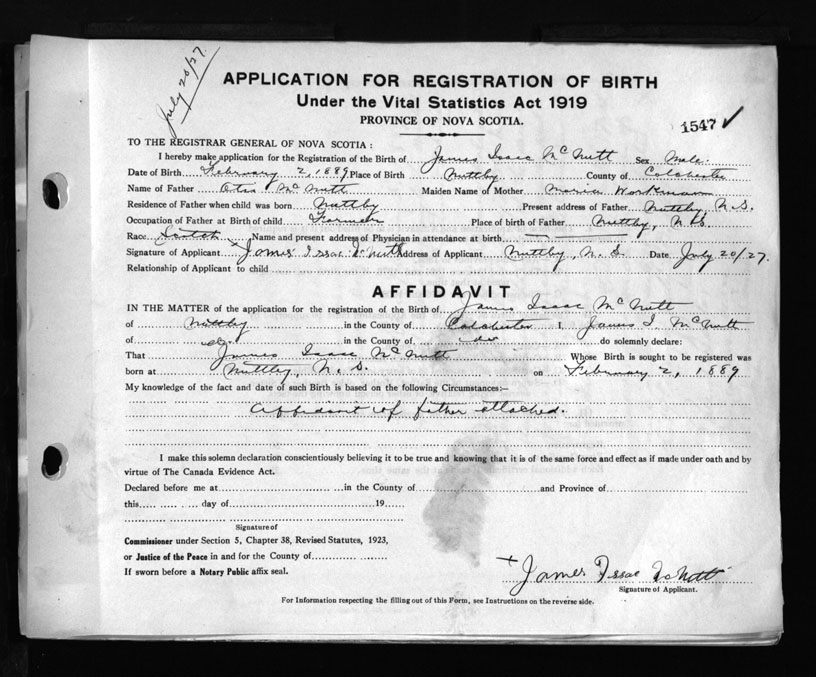 July 20/27.
APPLICATION FOR REGISTRATION OF BIRTH
Under the Vital Statistics Act 1919
PROVINCE OF NOVA SCOTIA.
1547 ✓
TO THE REGISTRAR GENERAL OF NOVA SCOTIA :
I hereby make application for the Registration of the Birth of James Isaac McNutt Sex Male.
Date of Birth February 2, 1889 Place of Birth Nuttby County of Colchester
Name of Father Otis McNutt Maiden Name of Mother Maria Workman
Residence of Father when child was born Nuttby Present address of Father Nuttby, N.S.
Occupation of Father at Birth of child Farmer Place of birth of Father Nuttby, N.S.
Race Scotch Name and present address of Physician in attendance at birth
Signature of Applicant James Issac McNutt Address of Applicant Nuttby, N.S. Date July 20/27.
Relationship of Applicant to child
AFFIDAVIT
IN THE MATTER of the application for the registration of the Birth of James Isaac McNutt
of Nuttby in the County of Colchester I, James I. McNutt
of do. in the County of do do solemnly declare:
That James Isaac McNutt Whose Birth is sought to be registered was
born at Nuttby, N.S. on February 2, 1889
My knowledge of the fact and date of such Birth is based on the following Circumstances:—
Affidavit of father attached.
I make this solemn declaration conscientiously believing it to be true and knowing that it is of the same force and effect as if made under oath and by
virtue of The Canada Evidence Act.
Declared before me at in the County of and Province of
this day of 19
Signature of
Commissioner under Section 5, Chapter 38, Revised Statutes, 1923,
or Justice of the Peace in and for the County of
If sworn before a Notary Public affix seal.
+ James Issac McNutt
Signature of Applicant.
For Information respecting the filling out of this Form, see Instructions on the reverse side.